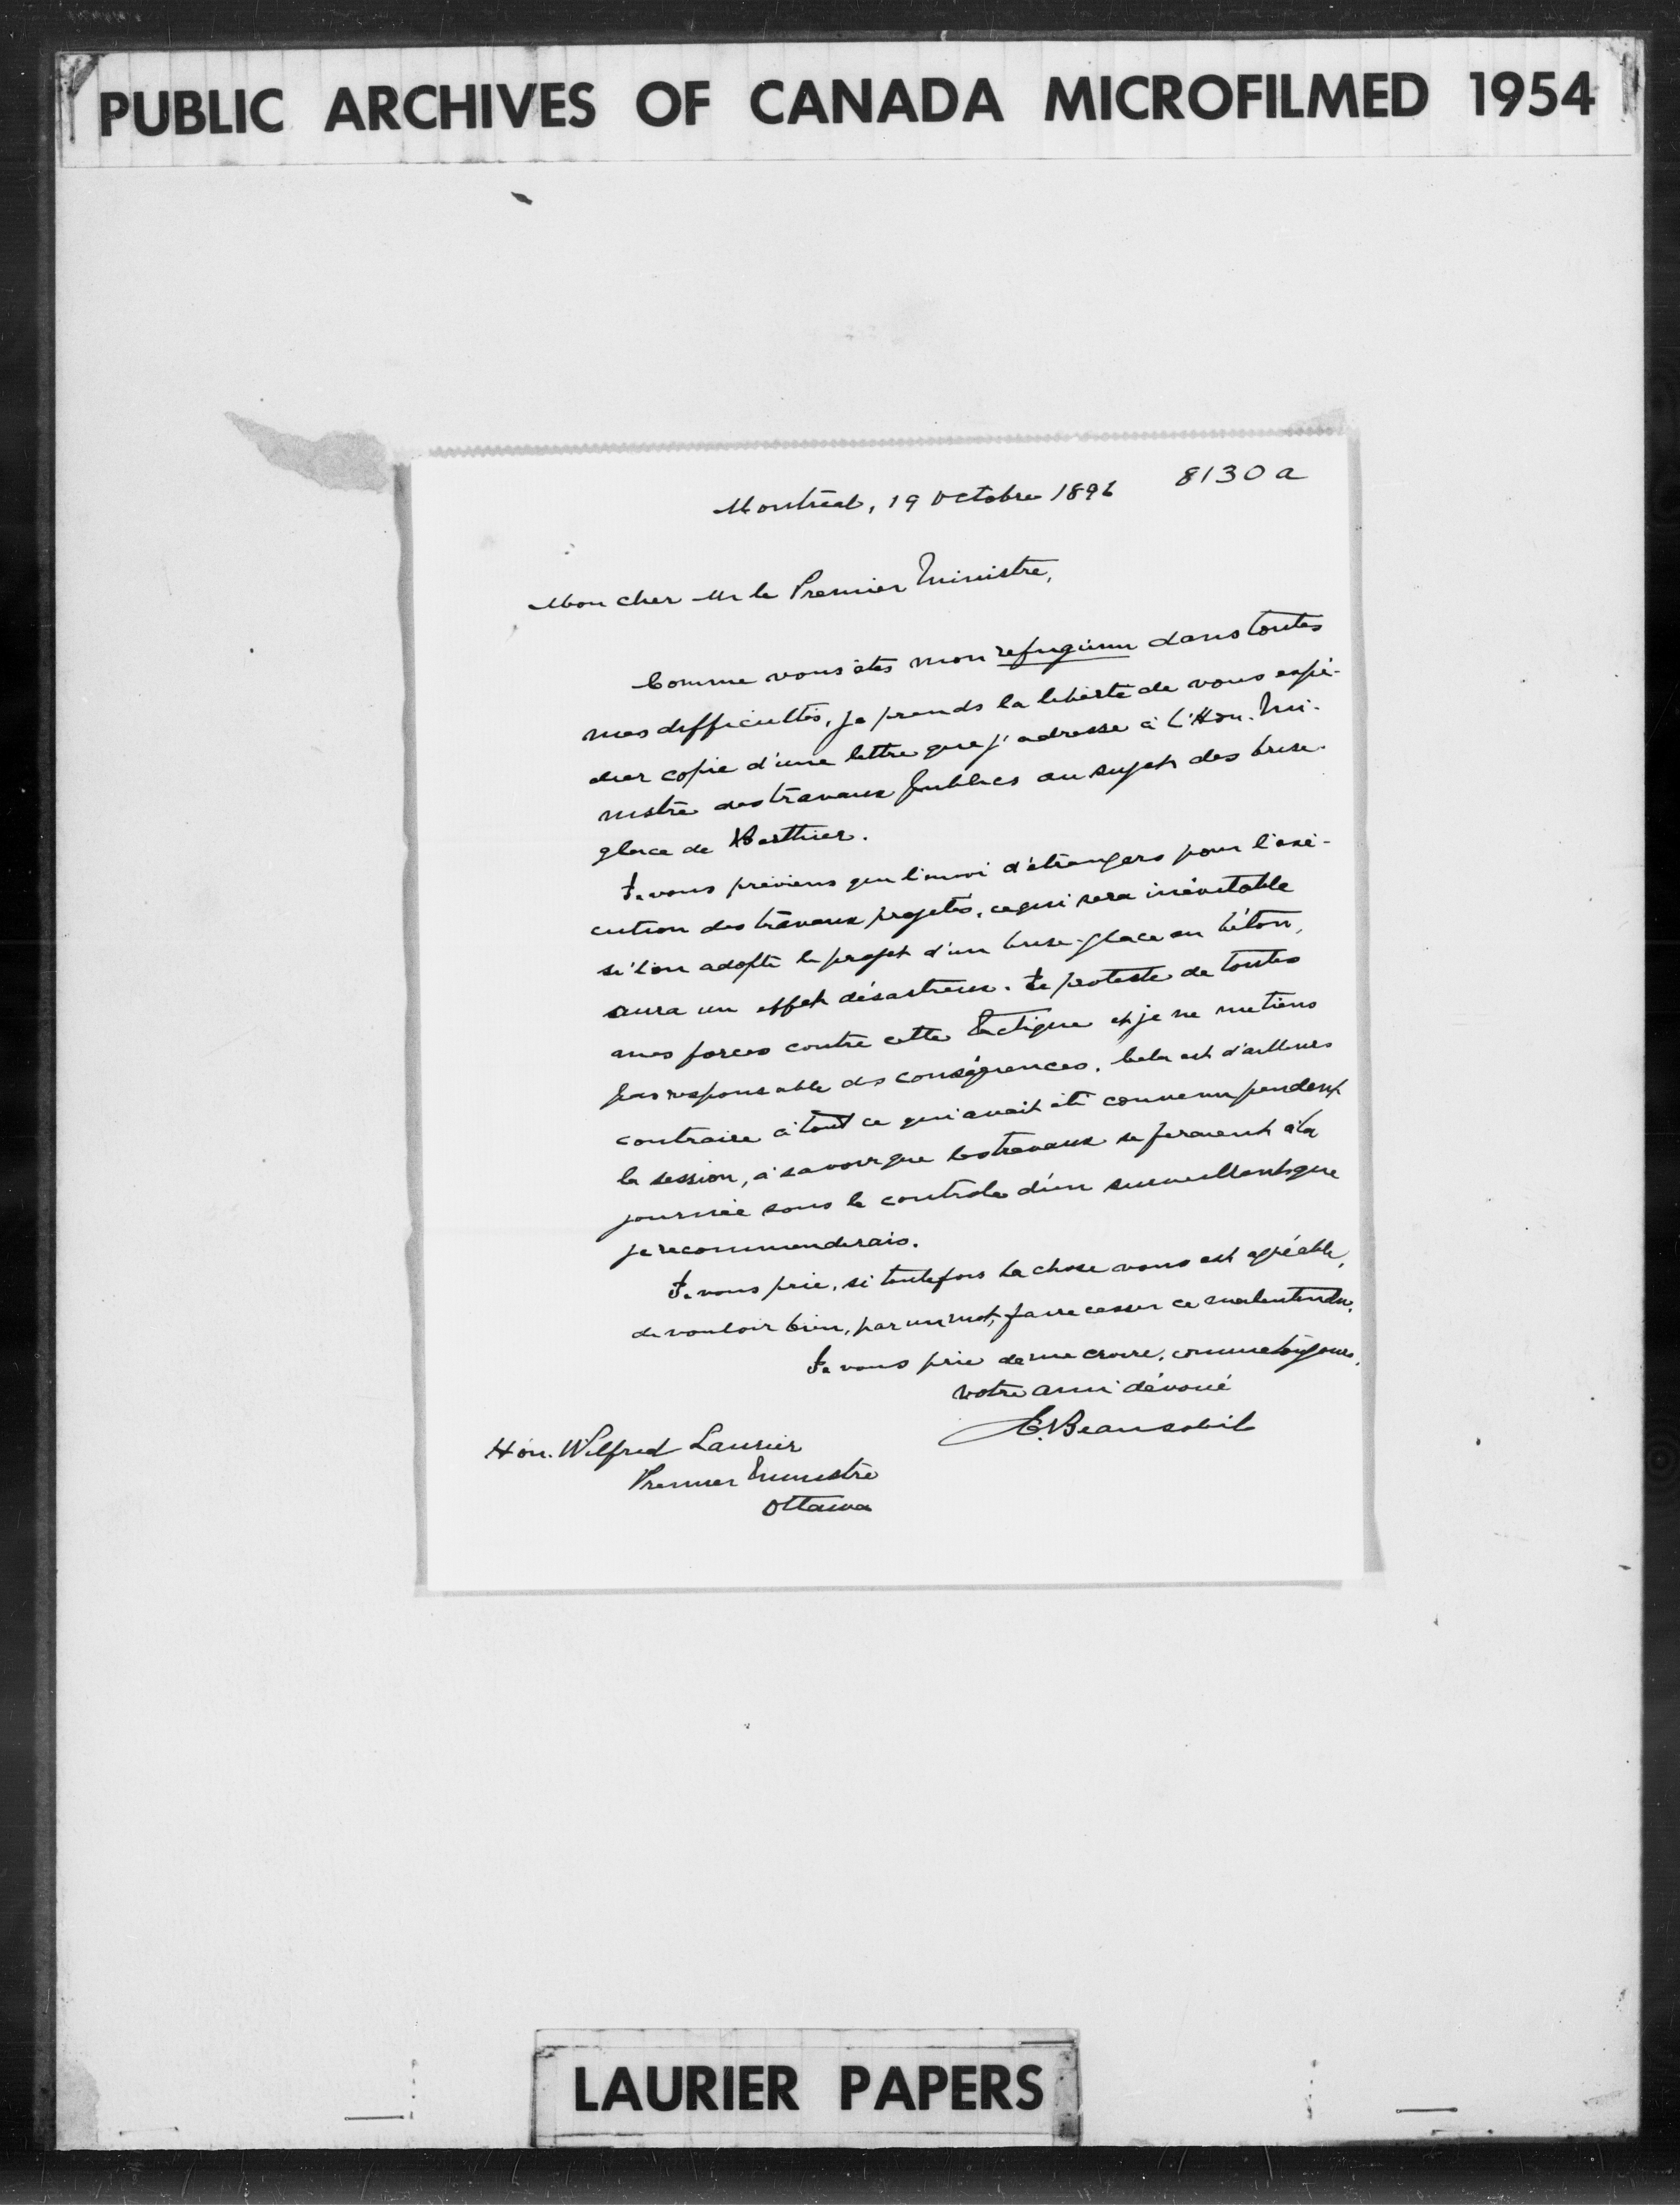 PUBLIC ARCHIVES OF CANADA MICROFILMED 1954
8130 a
Montréal, 19 Octobre 1896
Mon cher Mr le Premier Ministre,
Comme vous êtes mon refugium dans toutes
mes difficultés, je prends la liberté de vous expé-
dier copie d'une lettre que j'adresse à l'Hon. Mi-
nistre des travaux publics au sujet des brise-
glace de Berthier.
Je vous préviens que l'envoi d'étrangers pour l'exé-
cution des travaux projetés, ce qui sera inévitable
si l'on adopte le projet d'un brise-glace en béton,
aura un effet désastreux. Je proteste de toutes
mes forces contre cette tactique et je ne me tiens
pas responsable des conséquences. Cela est d'ailleurs
contraire à tout ce qui avait été convenu pendant
la session, à savoir que les travaux se feraient à la
journée sous le contrôle d'un surveillant que
je recommenderais.
Je vous prie, si toutefois la chose vous est agréable,
de vouloir bien, par un mot, faire cesser ce malentendu.
Je vous prie de me croire, comme toujours,
votre ami dévoué
C. Beausoleil
Hon. Wilfred Laurier
Premier Ministre
Ottawa
LAURIER PAPERS